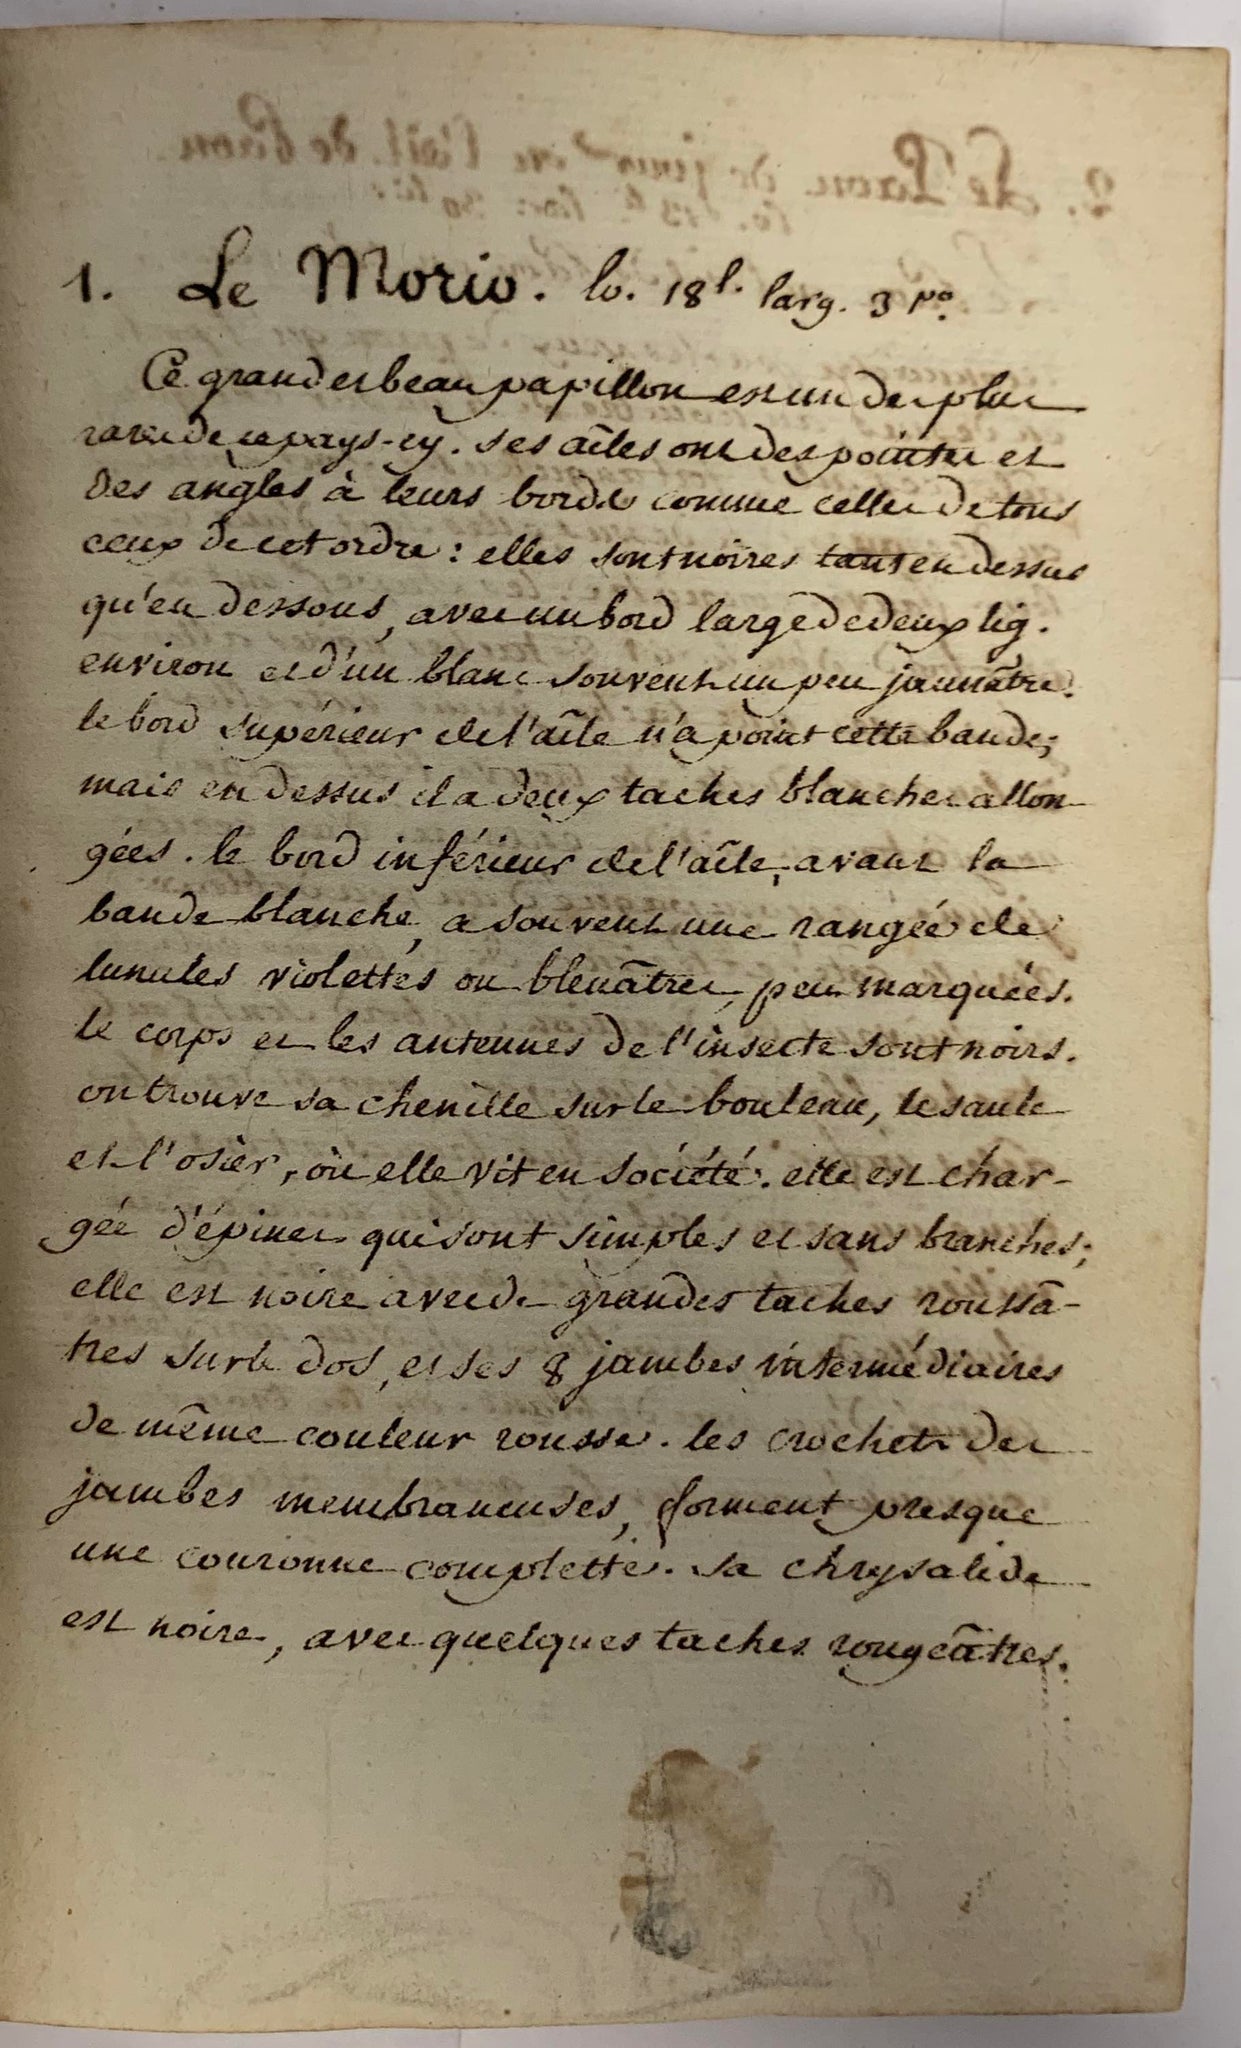 1. Le Morio. lo. 18 l. larg. 3 po.
Ce grand et beau papillon est un des plus
rares de ce pays-cy. ses aîles ont des pointes et
des angles à leurs bords comme celles de tous
ceux de cet ordre : elles sont noires tant en dessus
qu'en dessous, avec un bord large de deux lig.
environ et d'un blanc souvent un peu jaunâtre.
le bord supérieur de l'aîle n'a point cette bande;
mais en dessus il a deux taches blanches allon-
gées. le bord inférieur de l'aîle, avant la
bande blanche, a souvent une rangée de
lunules violettes ou bleuâtres, peu marquées.
le corps et les antennes de l'insecte sont noirs.
on trouve sa chenille sur le bouleau, le saule
et l'osier, où elle vit en société. elle est char-
gée d'épines qui sont simples et sans branches;
elle est noire avec de grandes taches roussâ-
tres sur le dos, et ses 8 jambes intermédiaires
de même couleur rousse. les crochets des
jambes membraneuses, forment presque
une couronne complette. sa chrysalide
est noire, avec quelques taches rougeâtres.